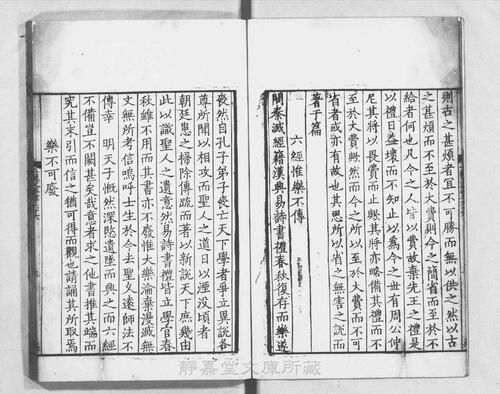 則古之甚煩者宜不可勝而無以供之然以古
之甚煩而不至於大費則今之簡省而至於不
給者何也凡今之人皆以費故棄先王之禮是
以禮日益壞而不知止以為今之世有周公仲
尼其將以畏費而止歟其將亦略備其禮而不
至於大費歟然而今之所以至於大費而不可
省者或亦有故也其思所以省之無害之說而
著于篇
六經惟樂不傳
聞秦滅經籍漢興易詩書禮春秋復存而樂遂
喪然自孔子弟子喪亡天下學者爭立異說各
尊所聞以相攻而聖人之道日以湮没頃者
朝廷患之掃除傳疏而著以新說天下庶幾由
此以識聖人之遺意然易詩書禮皆立學官春
秋雖不用而其書亦不廢惟大樂淪棄漫滅無
文無所考信嗚呼士生於今去聖久遠師法不
傳幸 明天子慨然深愍遺墜而興之而六經
不備豈不闕甚矣哉意者求之他書推其端而
究其末引而信之猶可得而觀也請誦其所取焉
樂不可廢
靜嘉堂文庫所藏